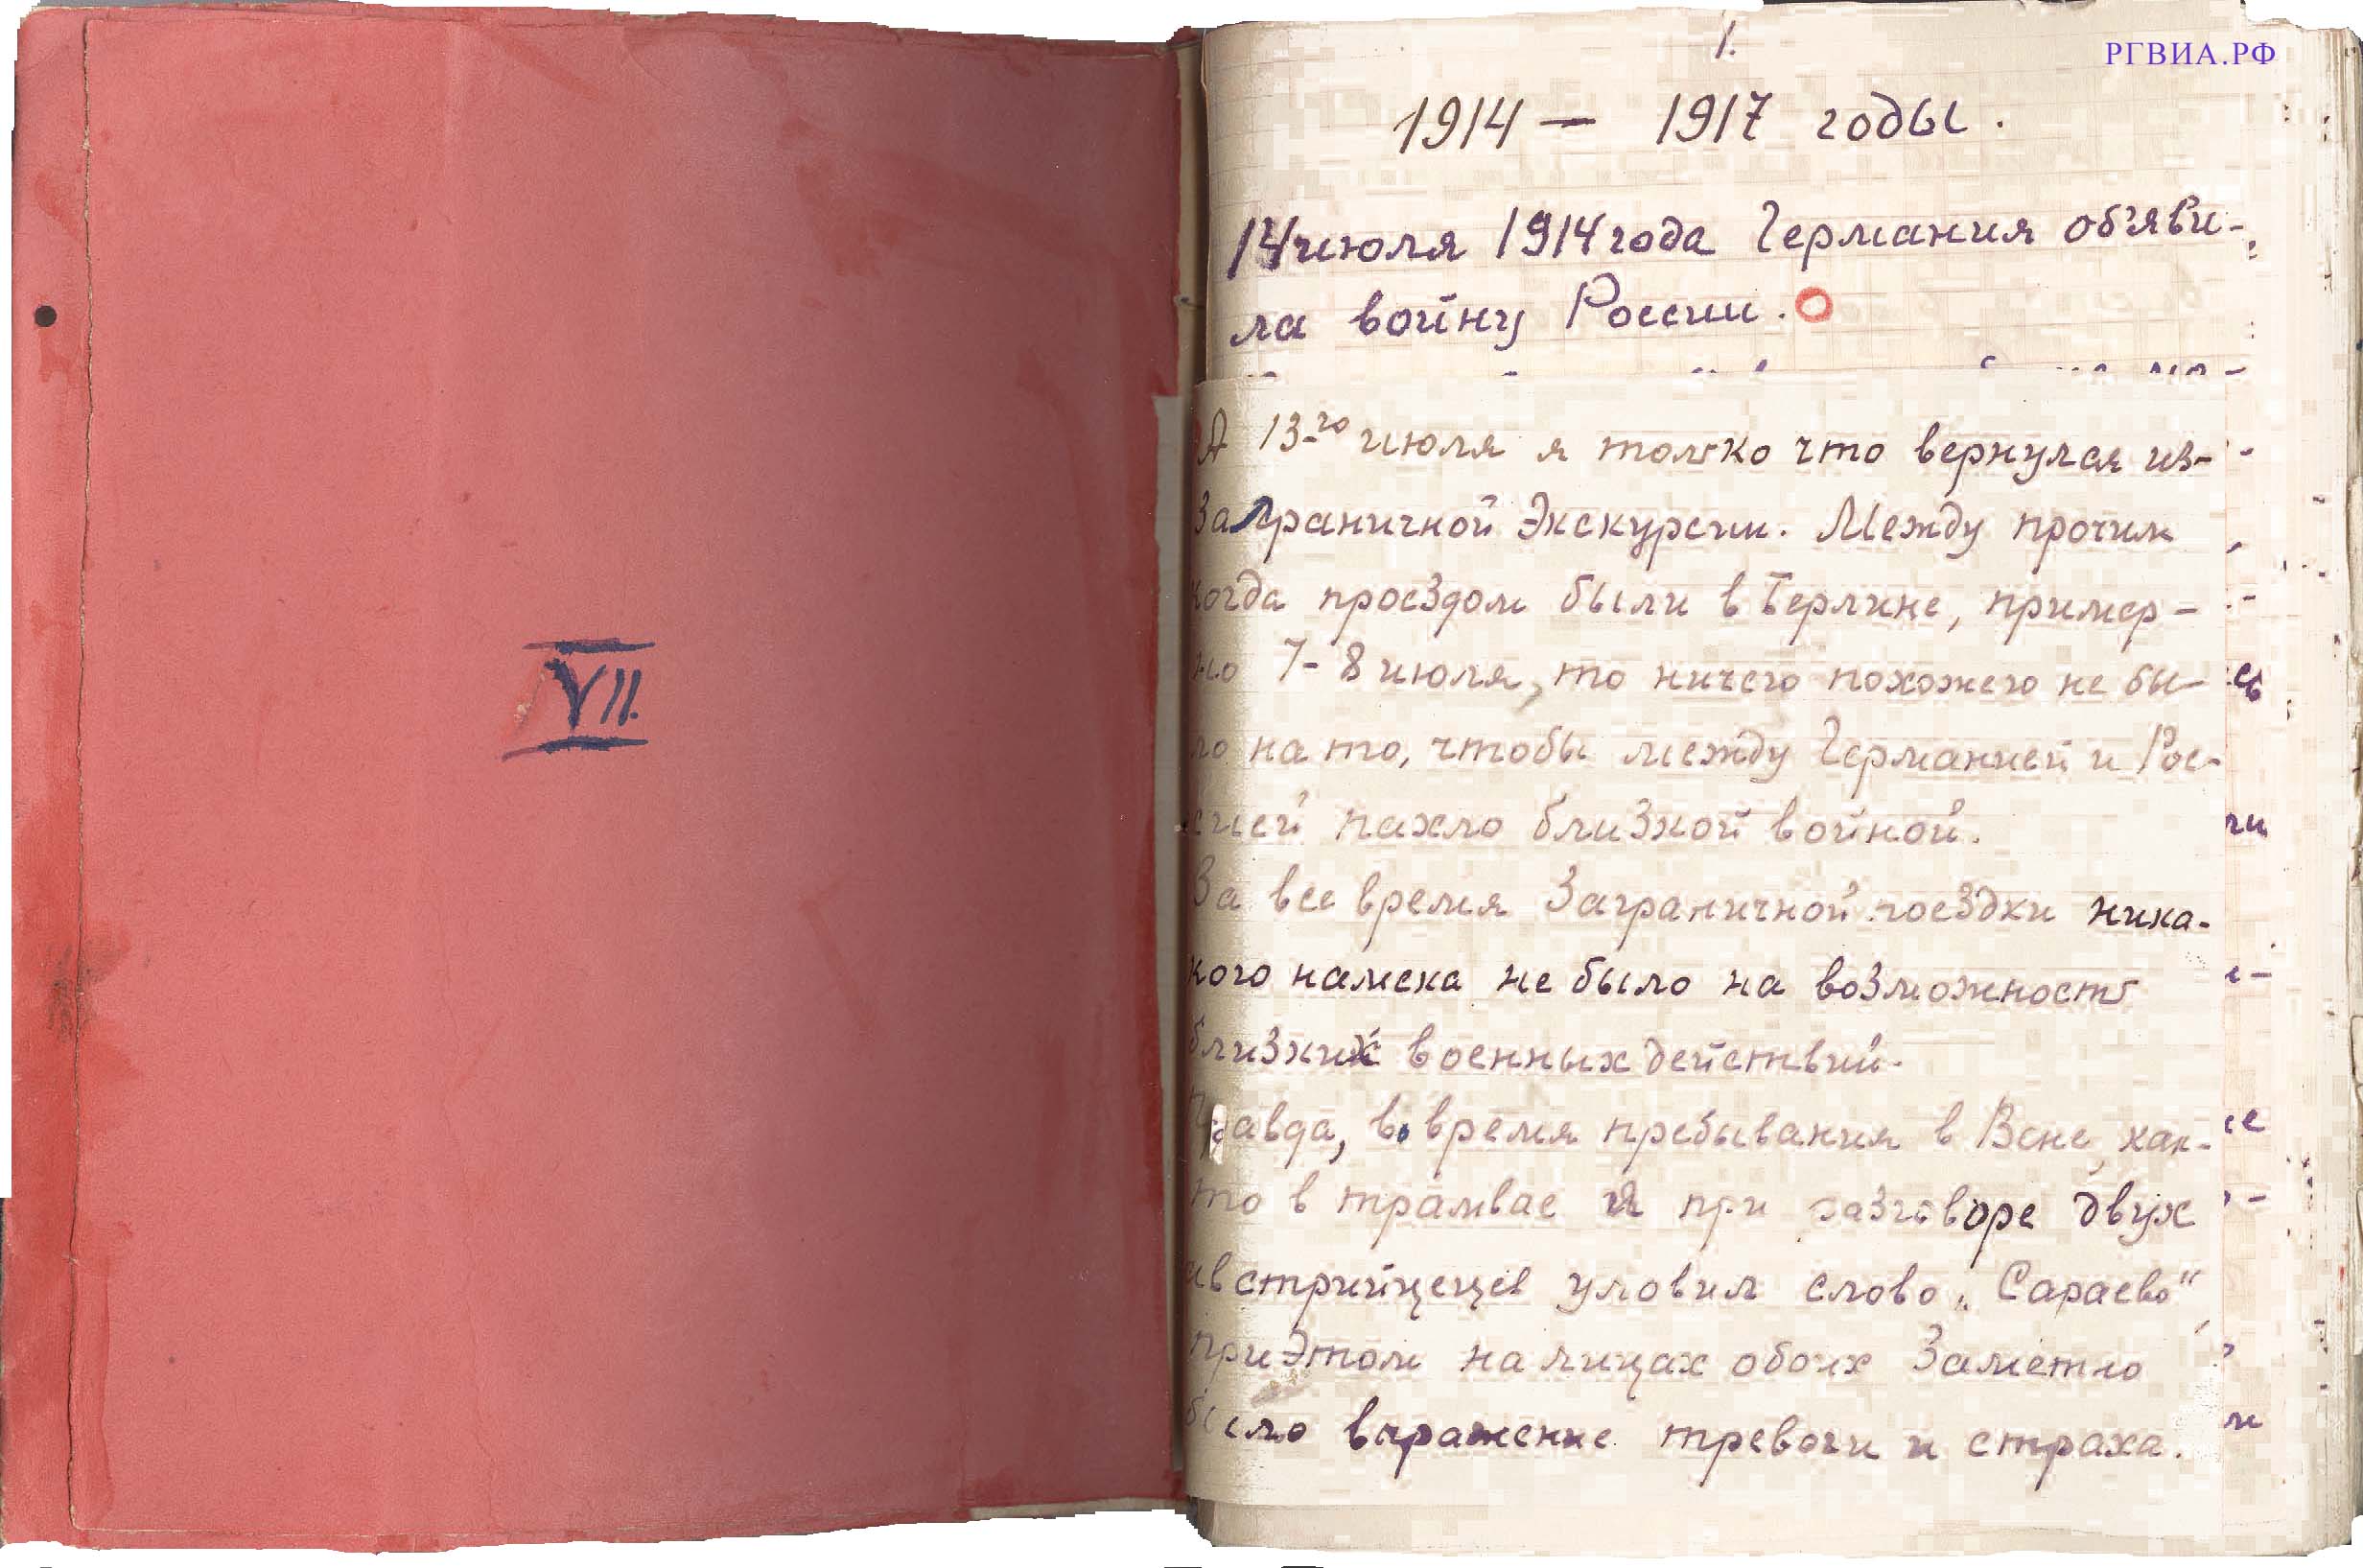 VII.
1.
РГВИА.РФ
1914 — 1917 годы.
14 июля 1914 года Германия об'яви-
ла войну России.
А 13-го июля я только что вернулся из-
заграничной экскурсии. Между прочим
когда проездом были в Берлине, пример-
но 7-8 июля, то ничего похожего не бы-
ло на то, чтобы между Германией и Рос-
сией пахло близкой войной.
За все время заграничной поездки ника-
кого намека не было на возможность
близких военных действий.
Правда, во время пребывания в Вене, как-
то в трамвае я при разговоре двух
австрийцецев уловил слово „Сараево“,
при этом на лицах обоих заметно
было выражение тревоги и страха.